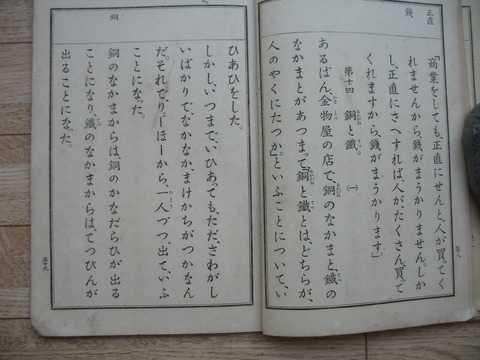 正直
錢
「商業をしても、正直にせんと、人が買ってく
れませんから、錢がまうかりません。しか
し、正直にさへすれば、人がたくさん、買って
くれますから、錢がまうかります。」
第十四 銅と鐵。(一)
あるばん、金物屋の店で、銅のなかまと、鐵の
なかまとがあつまって、「銅と鐵とは、どちらが、
人のやくにたつか。」といふことについて、い
ひあひをした。
しかし、いつまで、いひあっても、ただ、さわがし
いばかりで、なかなか、まけかちがつかなん
だ。それで、りょーほーから、一人づつ、出て、いふ
ことになった。
銅のなかまからは、銅のかなだらひが出る
ことになり、鐵のなかまからは、てつびんが
出ることになった。
五十九